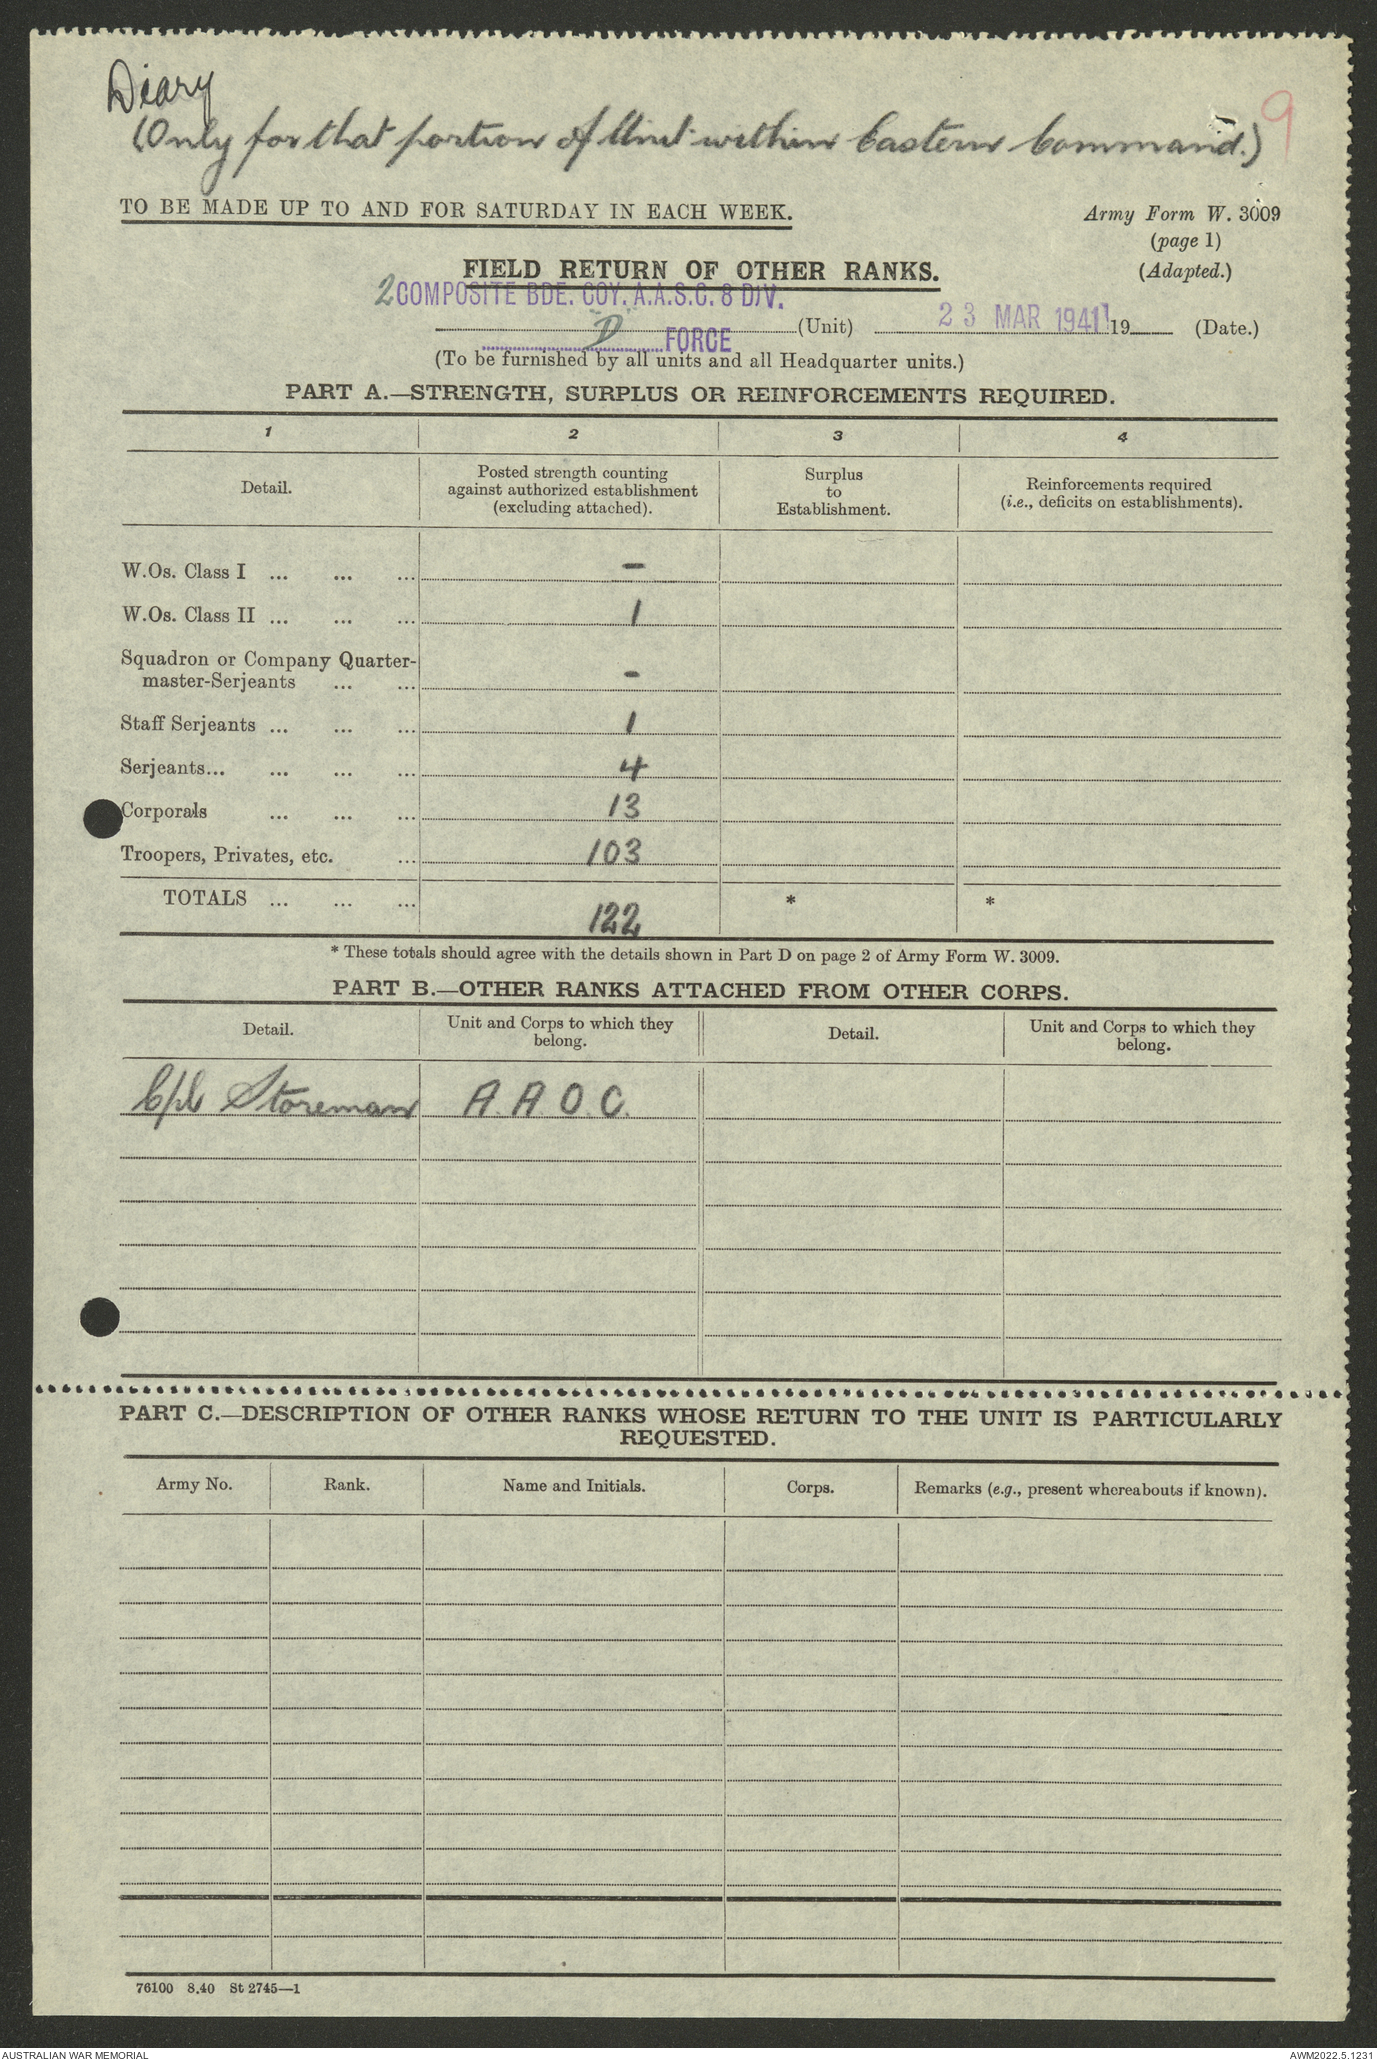 Diary
(Only for that portion of Unit within Eastern Command.)
9
TO BE MADE UP TO AND FOR SATURDAY IN EACH WEEK.
Army Form W. 3009
(page 1)
(Adapted.)
FIELD RETURN OF OTHER RANKS.
2 COMPOSITE BDE. COY. A.A.S.C. 8 DIV.
"D" FORCE
(Unit) 23 MAR 1941 19 (Date.)
(To be furnished by all units and all Headquarter units.)
PART A.—STRENGTH, SURPLUS OR REINFORCEMENTS REQUIRED.
1 2 3 4
Detail. Posted strength counting against authorized establishment (excluding attached). Surplus to Establishment. Reinforcements required (i.e., deficits on establishments).
W.Os. Class I ... ... ... -
W.Os. Class II ... ... ... 1
Squadron or Company Quarter-
master-Serjeants ... ... -
Staff Serjeants ... ... ... 1
Serjeants... ... ... ... 4
Corporals ... ... ... 13
Troopers, Privates, etc. ... 103
TOTALS ... ... ... 122 * *
* These totals should agree with the details shown in Part D on page 2 of Army Form W. 3009.
PART B.—OTHER RANKS ATTACHED FROM OTHER CORPS.
Detail. Unit and Corps to which they belong. Detail. Unit and Corps to which they belong.
Cpl Storeman A.A.O.C.
PART C.—DESCRIPTION OF OTHER RANKS WHOSE RETURN TO THE UNIT IS PARTICULARLY
REQUESTED.
Army No. Rank. Name and Initials. Corps. Remarks (e.g., present whereabouts if known).
76100 8.40 St 2745—1
AUSTRALIAN WAR MEMORIAL
AWM2022.5.1231